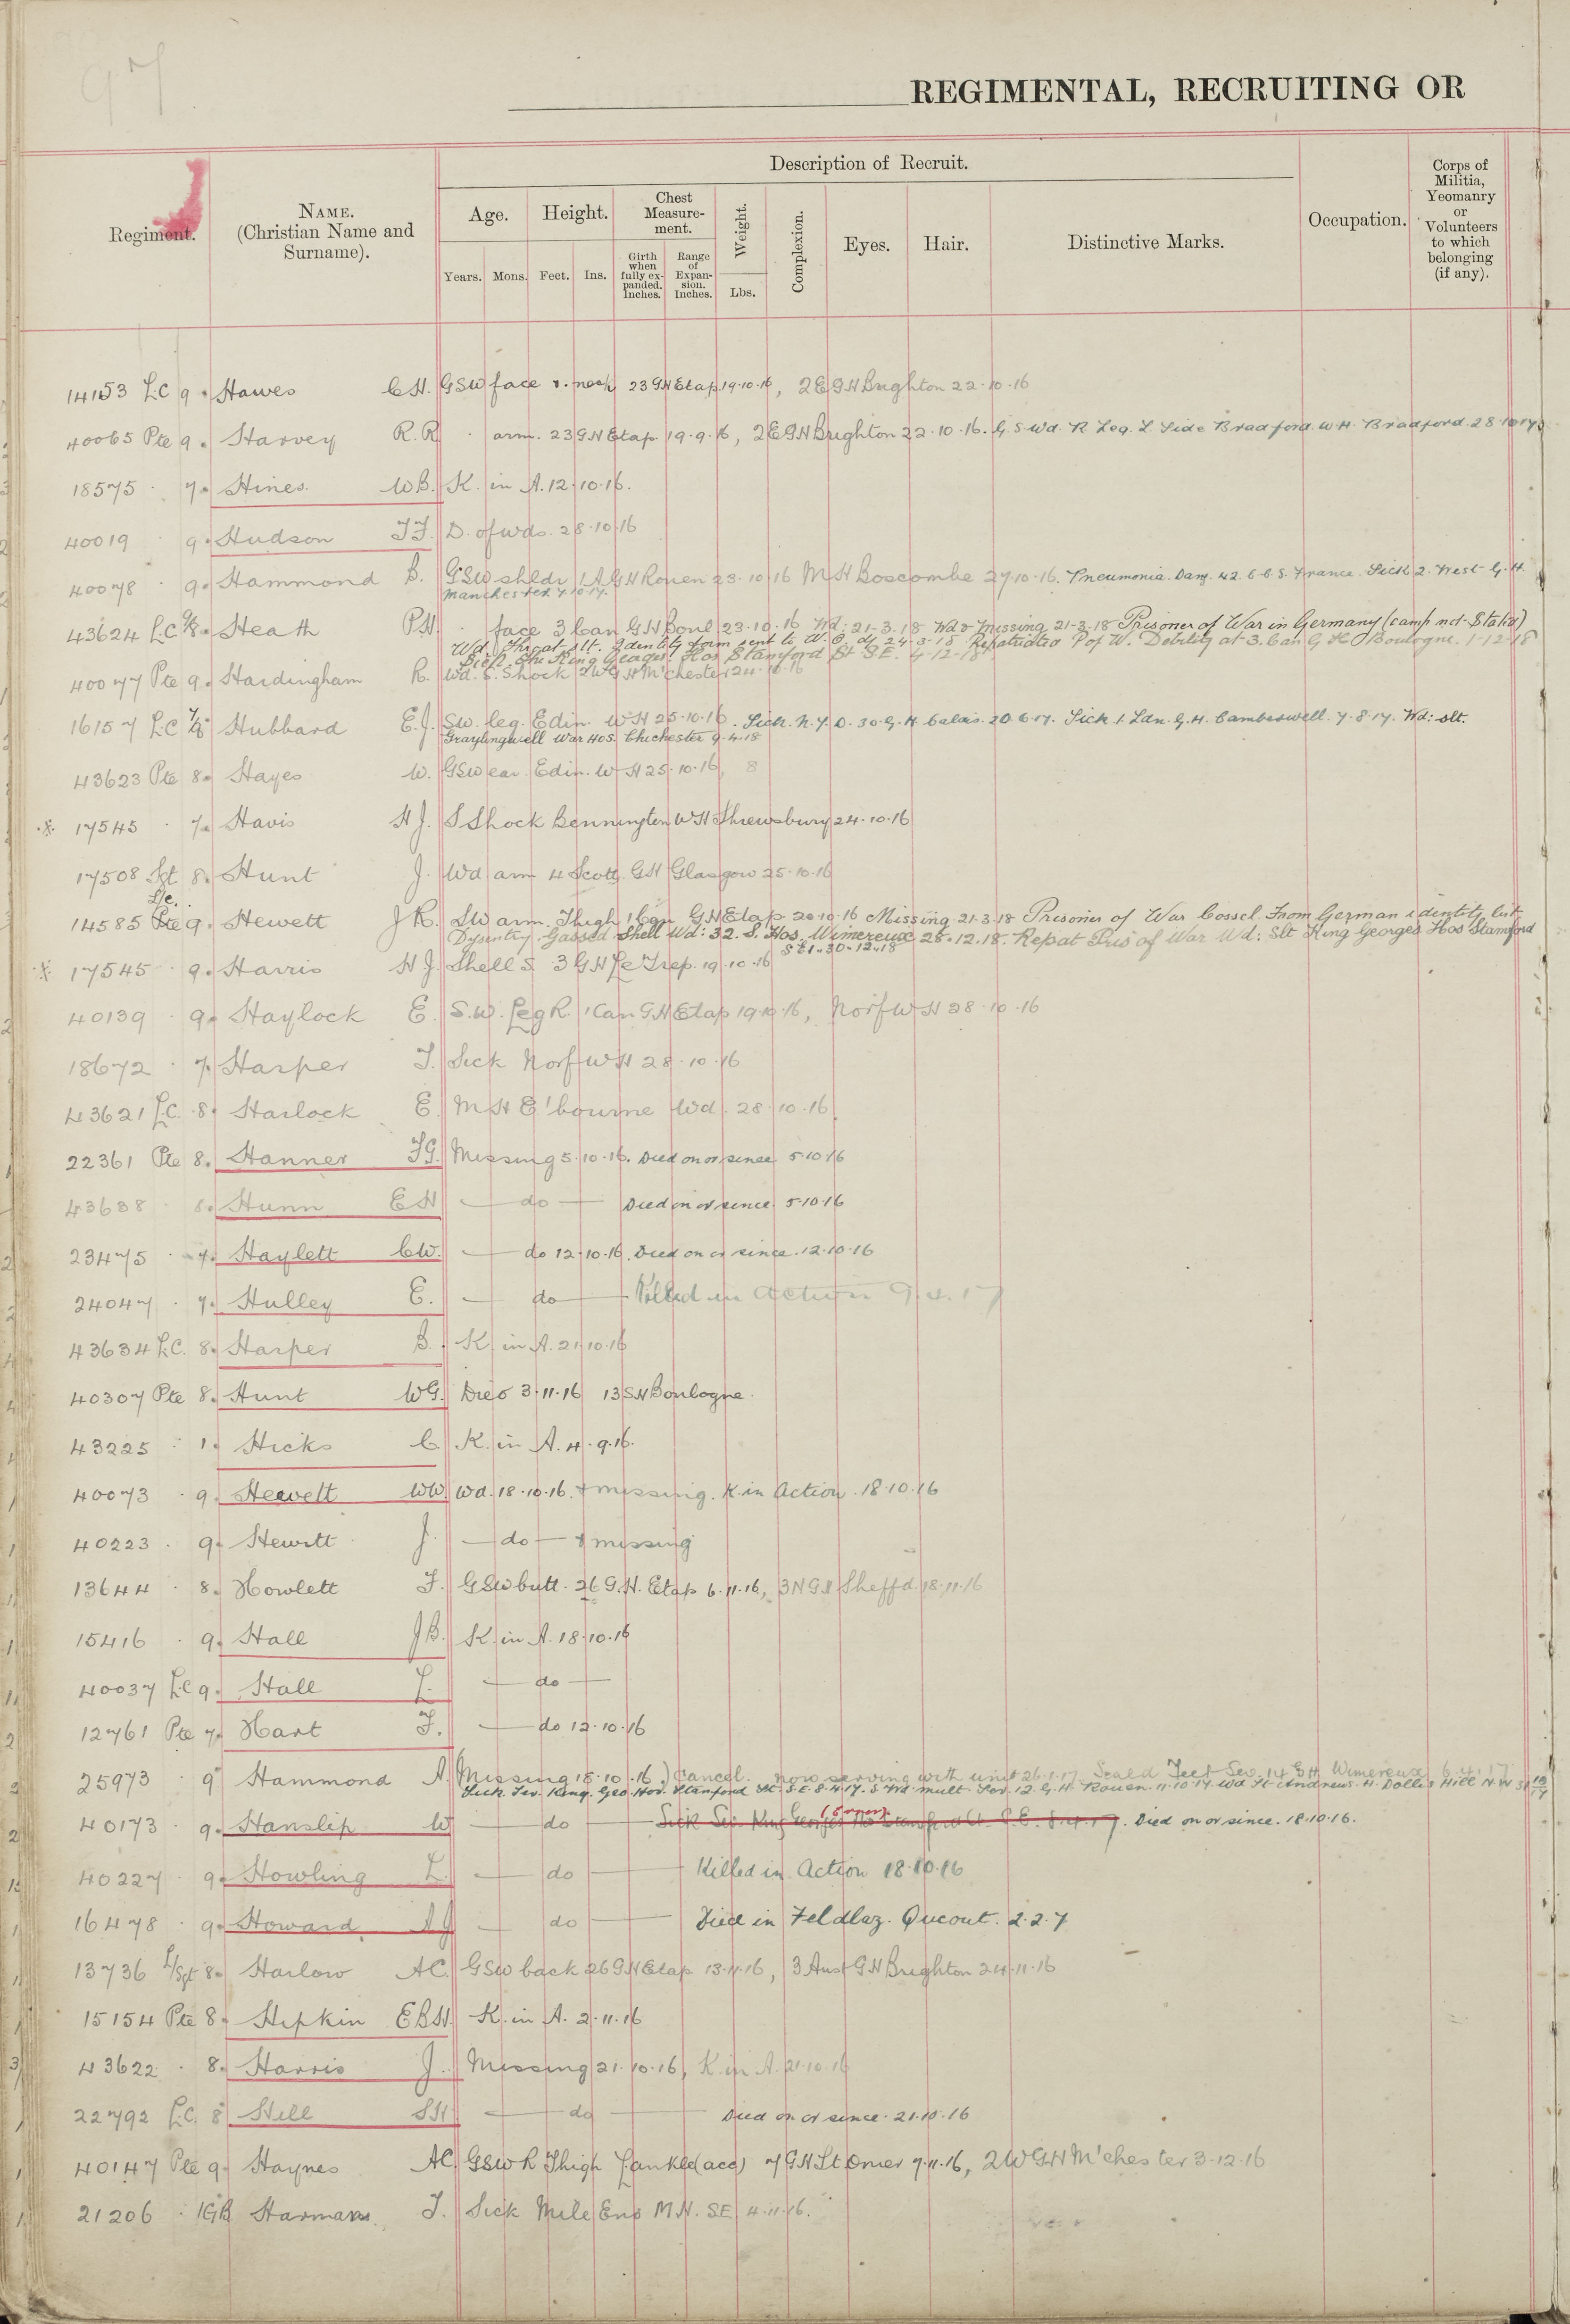 97
REGIMENTAL, RECRUITING OR
Regiment.
NAME.
(Christian Name and
Surname).
Description of Recruit.
Age.
Years. Mons.
Height.
Feet. Ins.
Chest
Measure-
ment.
Girth
when
fully ex-
panded.
Inches.
Range
of
Expan-
sion.
Inches.
Weight.
Lbs.
Complexion.
Eyes.
Hair.
Distinctive Marks.
Occupation.
Corps of
Militia,
Yeomanry
or
Volunteers
to which
belonging
(if any).
14153 L.C 9 Hawes C H. GSW face & neck 23 GH Etap. 19.10.16, 2EGH Brighton 22.10.16
40065 Pte 9 Harvey R.R. arm. 23 GH Etap. 19.9.16, 2EGH Brighton 22.10.16. G.S.Wd. R. Leg. L. Side Bradford. W.H. Bradford. 28.10.17
18575 7 Hines W B. K. in A. 12.10.16.
40019 9 Hudson F F. D. of wds. 28.10.16
40078 9 Hammond B. GSW shldr 1 AGH Rouen 23.10.16 MH Boscombe 27.10.16. Pneumonia. Dang. 42. C.C.S. France. Sick 2. West. G.H.
Manchester. 7.10.17.
43624 L.C 9/8 Heath P H. face 3 Can GH Boul 23.10.16 Wd: 21-3.18 Wd & Missing 21-3.18 Prisoner of War in Germany (camp not Stated)
Wd. Throat slt. Identity form sent to W.O. dy 24-3-18 Repatriated P of W. Debility at 3. Can G H Boulogne. 1-12-18
The King Georges Hos Stamford St S.E. 4-12-18
40077 Pte 9 Hardingham R. Wd. S. Shock 2WGH M'chester 24.10.16
16157 L.C 7/8 Hubbard E.J. SW. leg. Edin. W H 25.10.16. Sick. N.Y.D. 30. G.H. Calais. 20.6.17. Sick 1. Ldn. G.H. Camberwell. 7.8.17. Wd: slt.
Graylingwell War Hos. Chichester 9.4.18
43623 Pte 8 Hayes W. GSW ear. Edin. W H 25.10.16, 8
17545 7 Havis H J. S Shock Bennington WH Shrewsbury 24.10.16
17508 Sgt 8 Hunt J. Wd arm 4 Scott GH Glasgow 25.10.16
L/c.
14585 Pte 9 Hewett J R. SW arm. Thigh 1 Can GH Etap 20.10.16 Missing 21.3.18 Prisoner of War Cassel From German identity list
Dysentry. Gassed Shell Wd: 32. S. Hos. Wimereux 28.12.18. Repat Pris of War Wd: Slt King Georges Hos Stamford
St 1.30-12.18
17545 9 Harris H J. Shell S 3 GH Le Trep. 19.10.16
40139 9 Haylock E. S.W. Leg R. 1 Can GH Etap 19.10.16, Norf W H 28.10.16
18672 7 Harper T. Sick Norf W H 28.10.16
43621 L.C. 8 Harlock E. M H E'bourne Wd. 28.10.16
22361 Pte 8. Hanner F G. Missing 5.10.16. Died on or since 5.10.16
43638 8. Hunn E H — do — Died on or since 5.10.16
23475 7 Haylett C W. — do 12.10.16. Died on or since 12.10.16
24047 7. Hulley E. — do — Killed in Action 9.4.17
43634 L.C. 8. Harper B. K in A. 21.10.16
40307 Pte 8. Hunt W G. Died 3.11.16 13 SH Boulogne.
43225 1 Hicks C K. in A. 4.9.16.
40073 9. Hewett W W. Wd. 18.10.16. & missing. K. in Action. 18.10.16
40223 9 Hewitt J. — do — & missing
13644 8. Howlett F. GSW butt. 26 G.H. Etap 6.11.16, 3NGH Sheffd 18.11.16
15416 9. Hall J B. K. in A. 18.10.16
40037 L.C 9. Hall L. — do —
12761 Pte 7 Hart F. — do 12.10.16
25973 9 Hammond A. (Missing 18.10.16.) Cancel. now serving with unit 26.1.17 Scald Feet Sev. 14 GH Wimereux 6.4.17
Sick Sev. King. Geo. Hos. Stamford St. S.E. 8.4.17. S. Wd. mult. Sev. 12. G.H. Rouen. 11.10.17. Wd St Andrews. H. Dollis Hill N.W.
40173 9. Hanslip W — do — Sick Sev. King Georges Hos Stamford St. S.E. 8.4.17. (Error) Died on or since. 18.10.16.
40227 9 Howling L. — do — Killed in Action 18.10.16
16478 9 Howard A J — do — Died in Feldlaz. Qucout. 2.2.7
13736 L/Sgt 8 Harlow A C. GSW back 26 GH Etap 13.11.16, 3 Aust GH Brighton 24.11.16
15154 Pte 8 Hipkin E B H. K. in A. 2.11.16
43622 8 Harris J. Missing 21.10.16, K. in A. 21.10.16
22792 L.C. 8 Hill S H — do — Died on or since 21.10.16
40147 Pte 9 Haynes A C. GSW R Thigh L ankle (acc) 7 GH St Omer 9.11.16, 2WGH M'chester 3.12.16
21206 1GB Harman T. Sick Mile End M.H. SE 4.11.16.